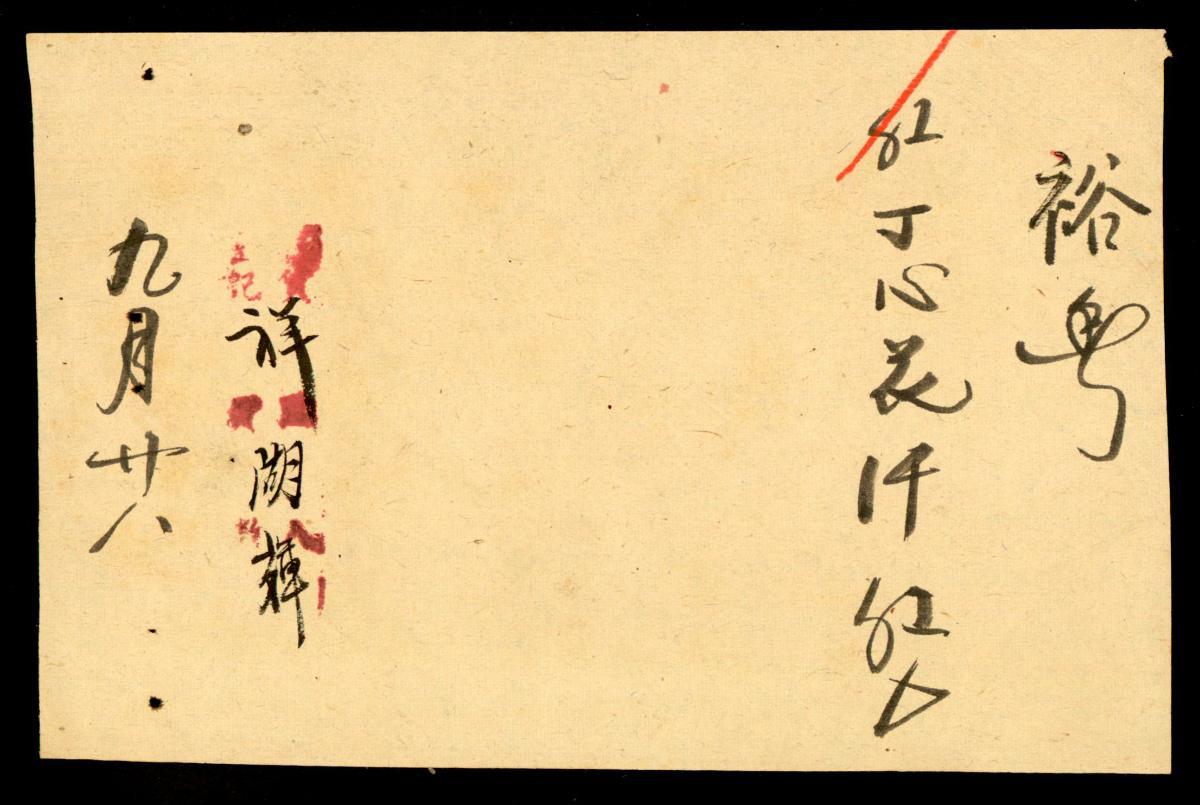 裕粤
红丁心花仟红
祥湖輝
九月廿八